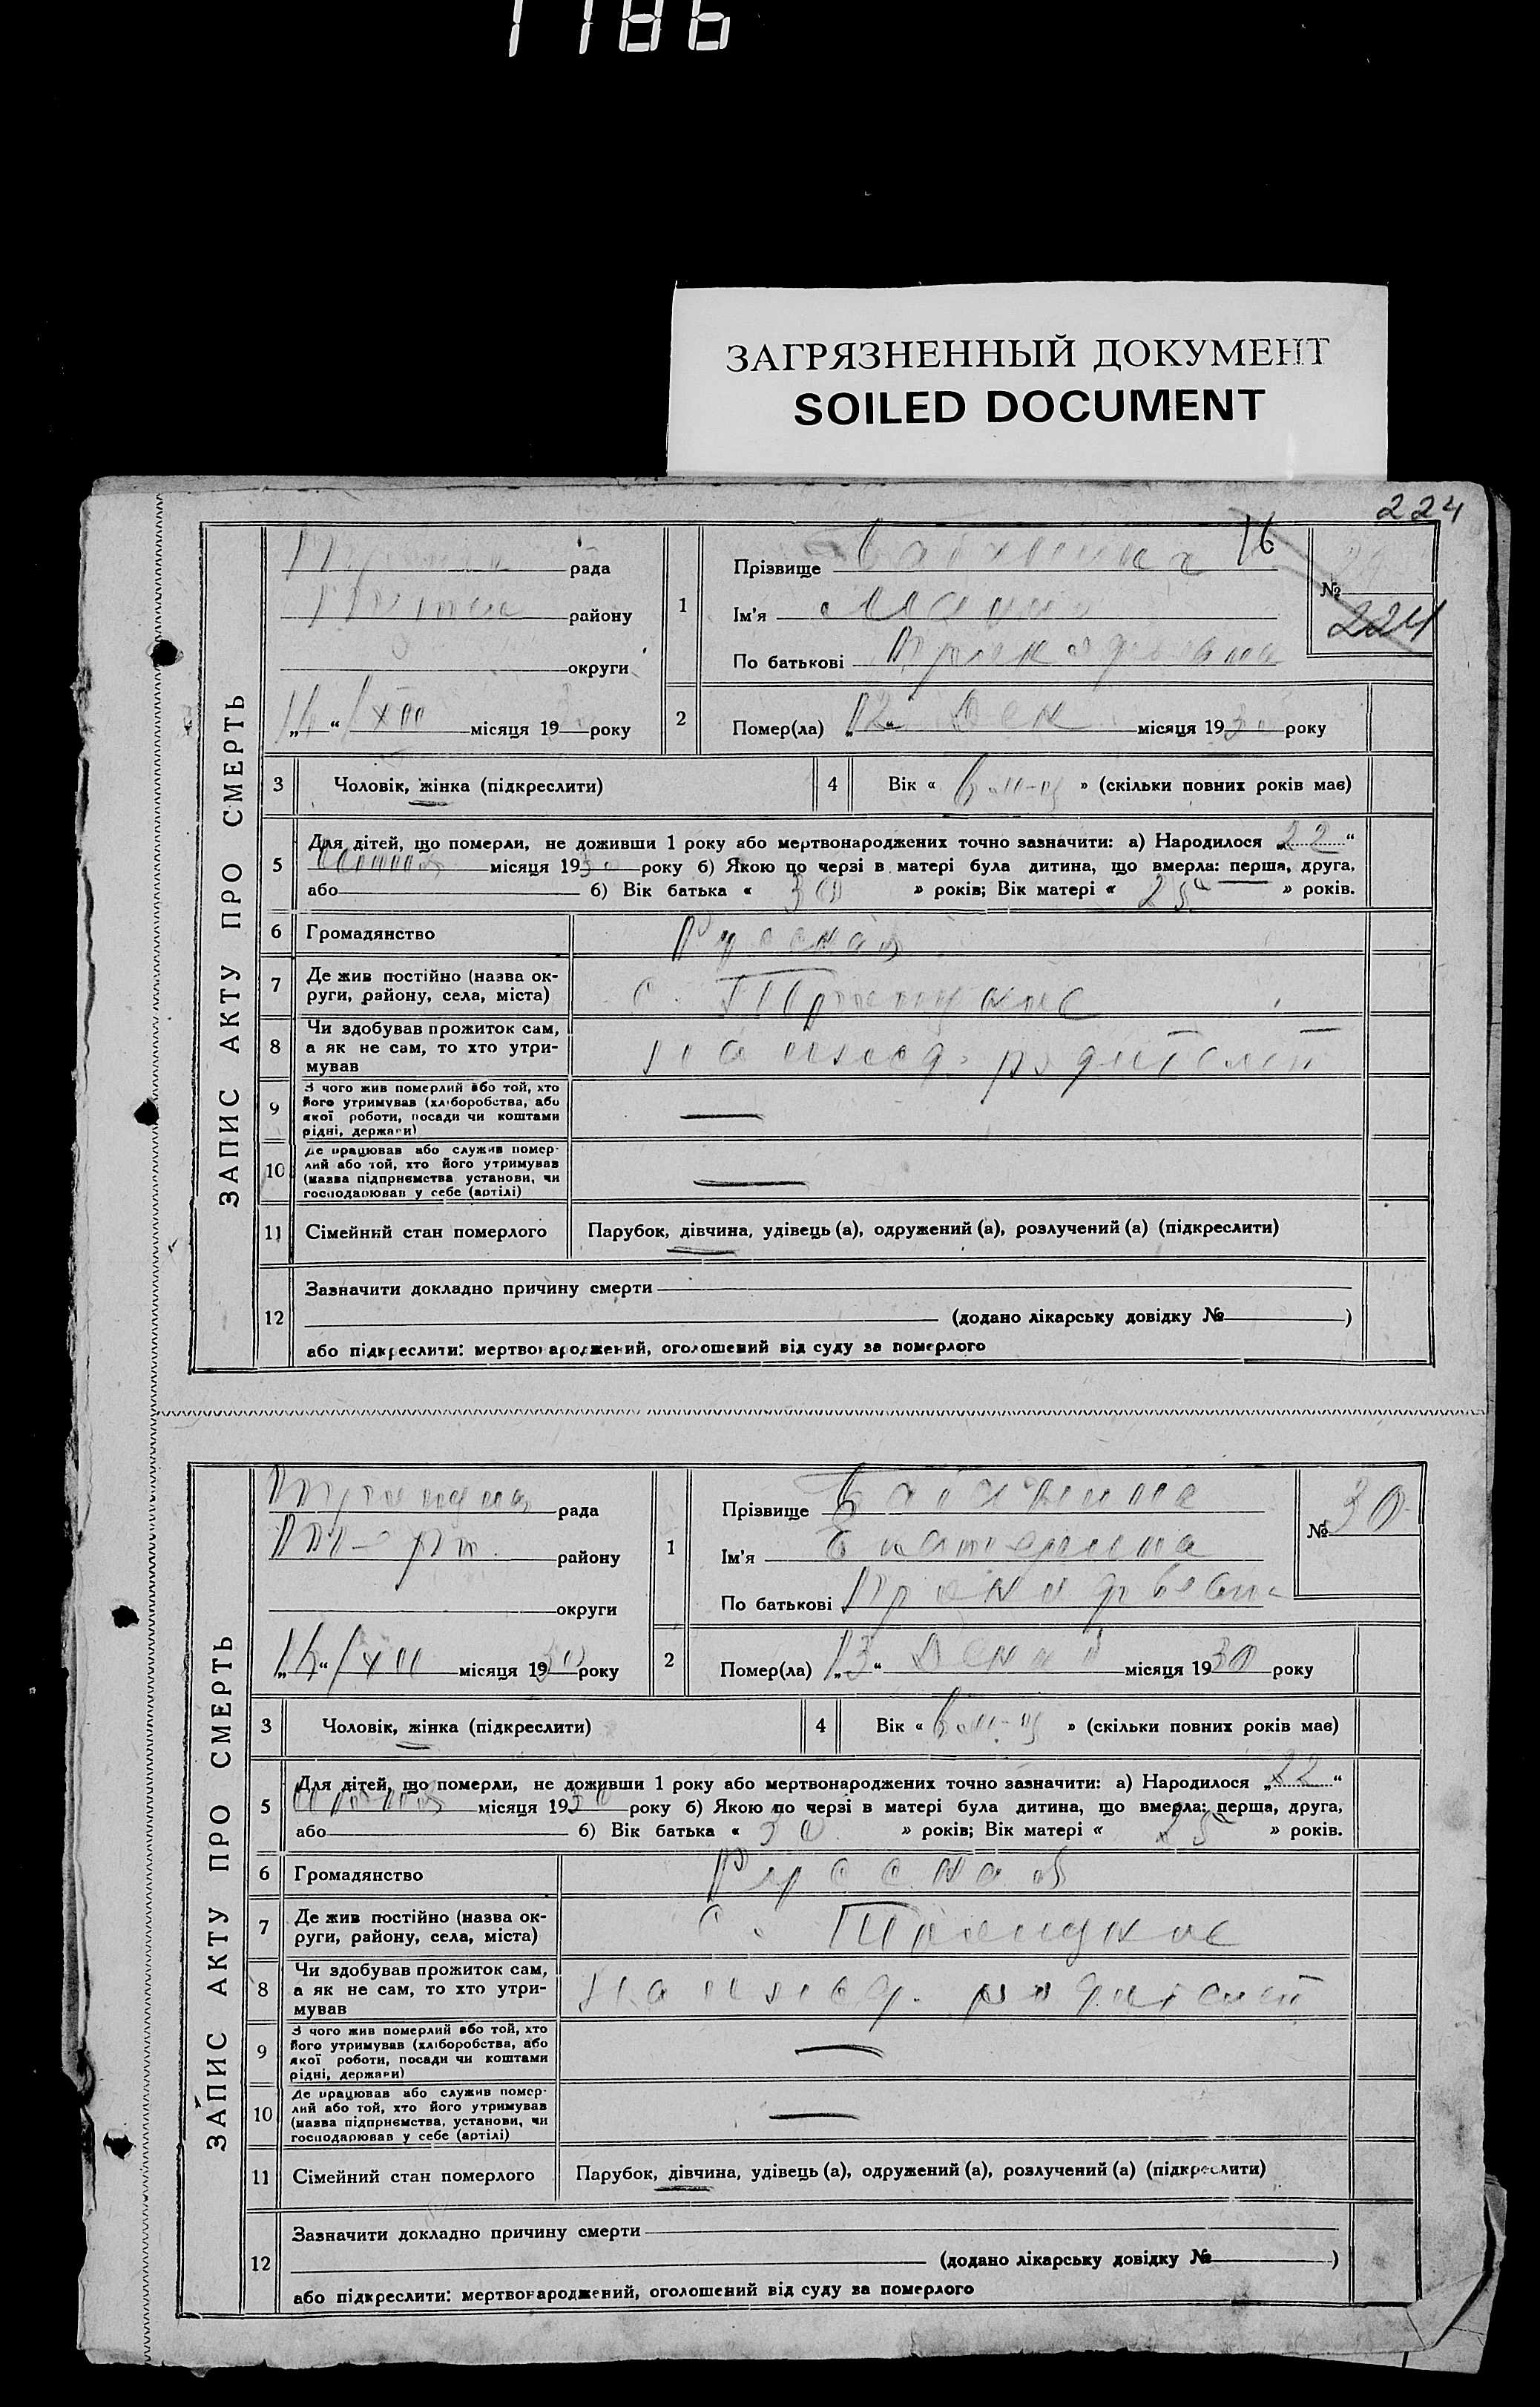 1186
ЗАГРЯЗНЕННЫЙ ДОКУМЕНТ
SOILED DOCUMENT
224
ЗАПИС АКТУ ПРО СМЕРТЬ
рада
району
округи
„ “ /XII місяця 19 року
1
Прізвище 16
Ім'я
По батькові
№
224
2
Помер(ла) „12“ Дек місяця 1930 року
3 Чоловік, жінка (підкреслити)
4 Вік « 6 » (скільки повних років має)
5 Для дітей, що померли, не доживши 1 року або мертвонароджених точно зазначити: а) Народилося „22“
місяця 1930 року б) Якою по черзі в матері була дитина, що вмерла: перша, друга,
або б) Вік батька « 30 » років; Вік матері « 25 » років.
6 Громадянство Русская
7 Де жив постійно (назва ок-
руги, району, села, міста) с.
8 Чи здобував прожиток сам,
а як не сам, то хто утри-
мував на иждев. родителей
9 З чого жив померлий або той, хто
його утримував (хліборобства, або
якої роботи, посади чи коштами
рідні, держави)
10 Де працював або служив помер-
лий або той, хто його утримував
(назва підприємства установи, чи
господарював у себе (артілі)
11 Сімейний стан померлого Парубок, дівчина, удівець (а), одружений (а), розлучений (а) (підкреслити)
12 Зазначити докладно причину смерти
(додано лікарську довідку № )
або підкреслити: мертвонароджений, оголошений від суду за померлого
ЗАПИС АКТУ ПРО СМЕРТЬ
рада
району
округи
„ “ /XII місяця 1930 року
1
Прізвище
Ім'я Екатерина
По батькові
№ 30
2
Помер(ла) „13“ місяця 1930 року
3 Чоловік, жінка (підкреслити)
4 Вік « 6 » (скільки повних років має)
5 Для дітей, що померли, не доживши 1 року або мертвонароджених точно зазначити: а) Народилося „22“
місяця 1930 року б) Якою по черзі в матері була дитина, що вмерла: перша, друга,
або б) Вік батька « 30 » років; Вік матері « 25 » років.
6 Громадянство Русская
7 Де жив постійно (назва ок-
руги, району, села, міста) с.
8 Чи здобував прожиток сам,
а як не сам, то хто утри-
мував на иждев. родителей
9 З чого жив померлий або той, хто
його утримував (хліборобства, або
якої роботи, посади чи коштами
рідні, держави)
10 Де працював або служив помер-
лий або той, хто його утримував
(назва підприємства, установи, чи
господарював у себе (артілі)
11 Сімейний стан померлого Парубок, дівчина, удівець (а), одружений (а), розлучений (а) (підкреслити)
12 Зазначити докладно причину смерти
(додано лікарську довідку № )
або підкреслити: мертвонароджений, оголошений від суду за померлого